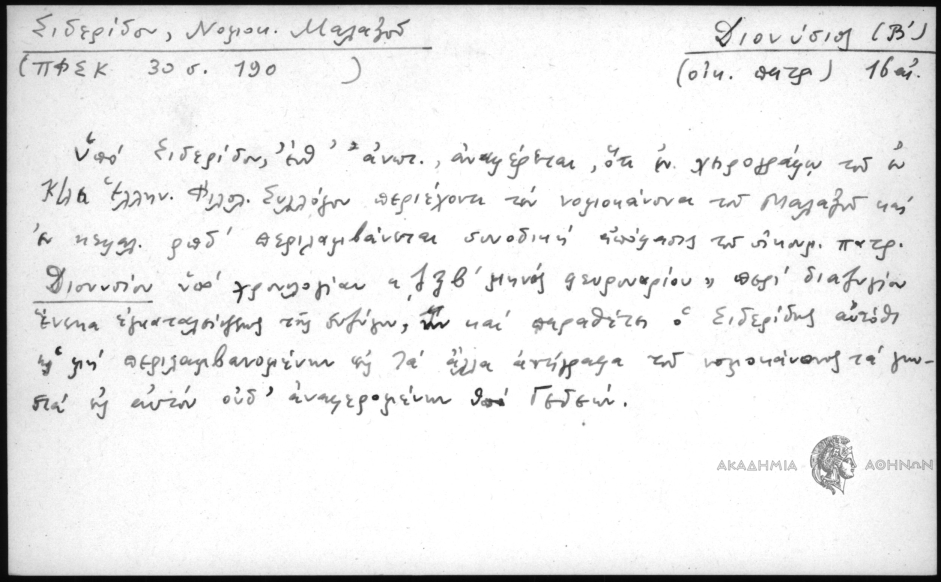 Σιδερίδου, Νομοκ. Μαλαξοῦ
Διονύσιος (Β΄)
(ΠΦΣΚ 30 σ. 190 )
(οἰκ. πατρ) 16 αἰ.
Ὑπό Σιδερίδου, ἔνθ' ἀνωτ., ἀναφέρεται, ὅτι ἐν χειρογράφῳ τοῦ ἐν
Κ/λει Ἑλλην. Φιλολ. Συλλόγου περιέχοντι τόν νομοκάνονα τοῦ Μαλαξοῦ καί
ἐν κεφαλ. ρπδ΄ περιλαμβάνεται συνοδική ἀπόφασις τοῦ οἰκουμ. πατρ.
Διονυσίου ὑπό χρονολογίαν « ζξβ΄ μηνός φευρουαρίου» περί διαζυγίου
ἕνεκα ἐγκαταλείψεως τῆς συζύγου, ἥν καί παραθέτει ὁ Σιδερίδης αὐτόθι
ὡς μή περιλαμβανομένην εἰς τά ἄλλα ἀντίγραφα τοῦ νομοκάνονος τά γνω-
στά εἰς αὐτόν οὐδ' ἀναφερομένην ὑπό Γεδεών.
ΑΚΑΔΗΜΙΑ ΑΘΗΝΩΝ